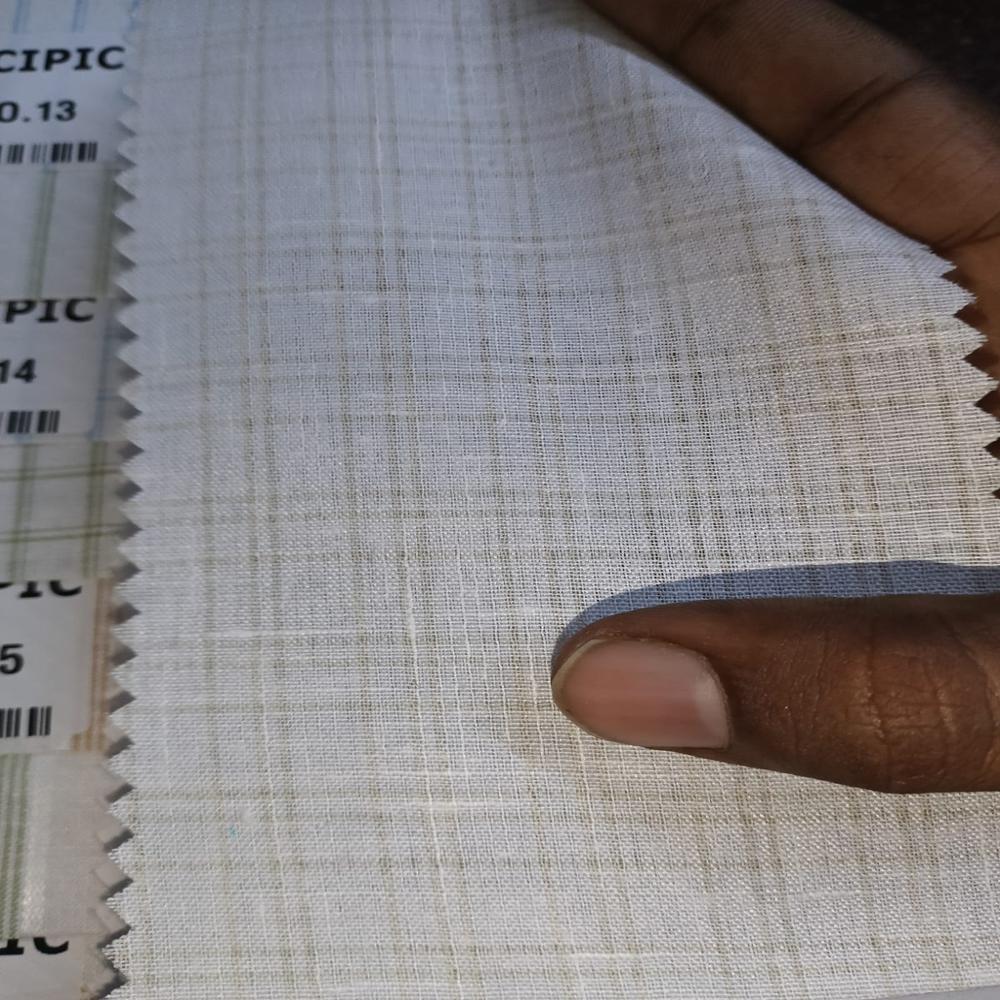 CIPIC
0.13
PIC
14
PIC
5
IC